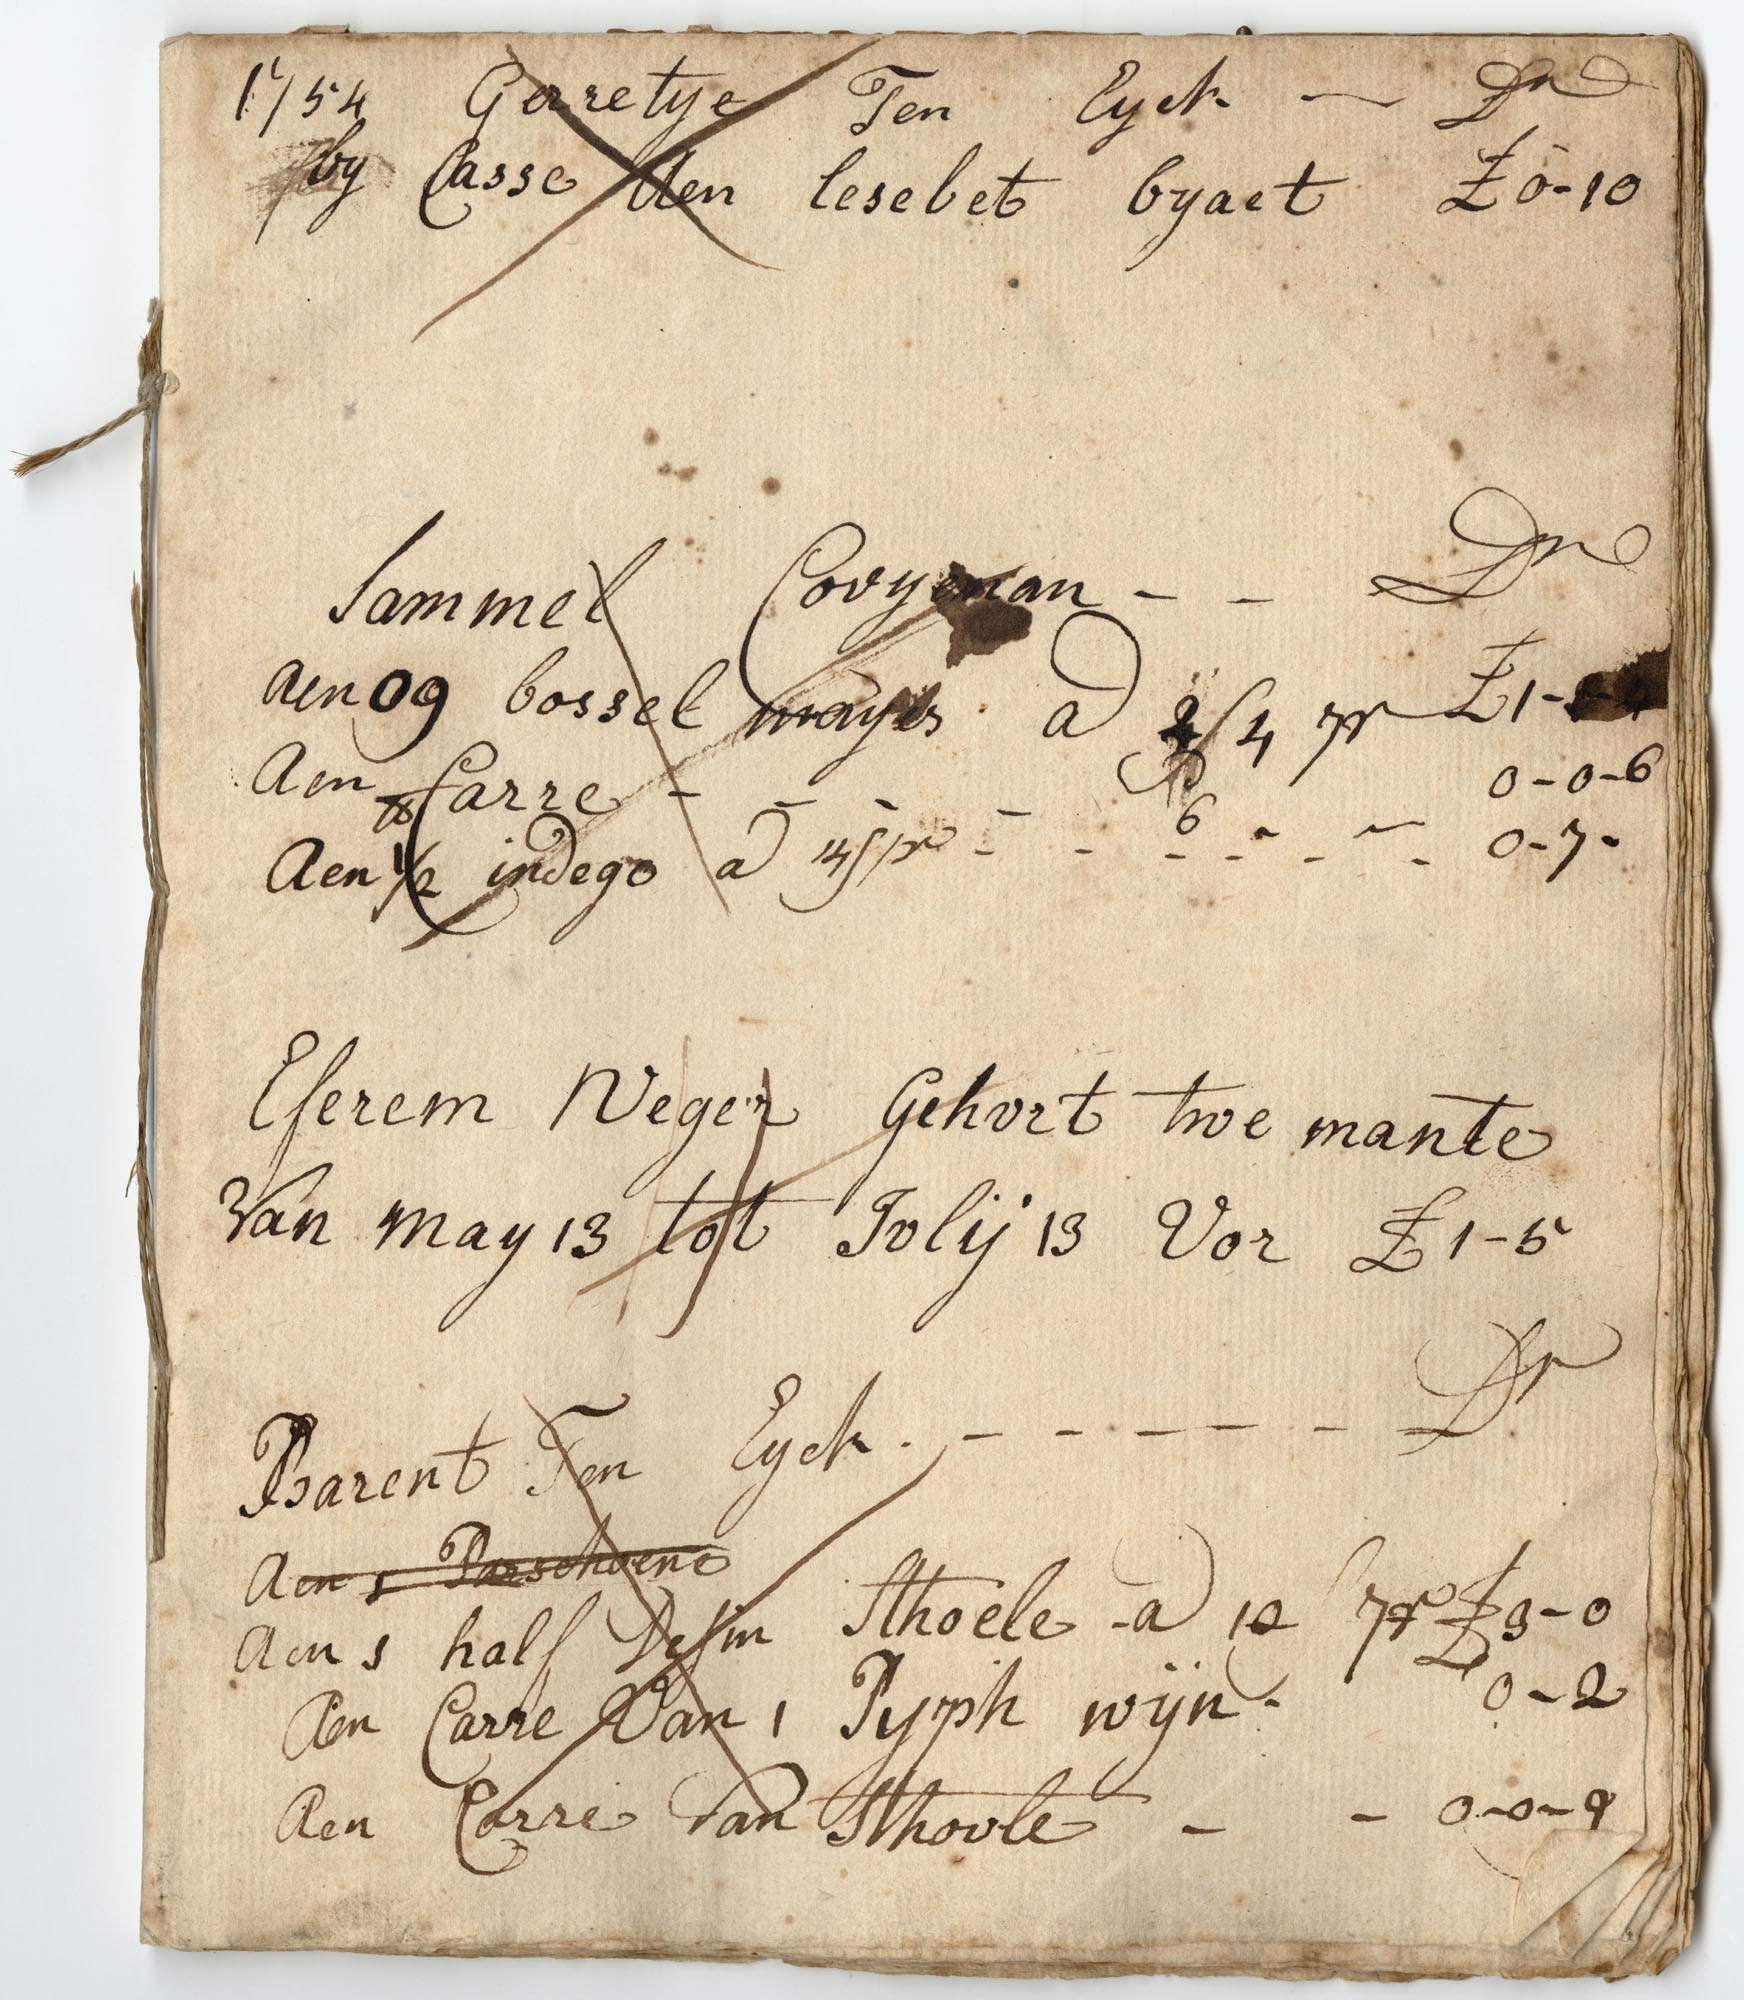 1754 Gerretye Ten Eyck — Dr
by Casse Aen lesebet byaet £0-10
Sammel Covyeman - - Dr
Aen 09 bossel mayes a 2/4 pr £1-
Aen Carre - - - - 6 0-0-6
Aen 1/2 indego a 14/pr - - - - - - 0-7-
Eferem Neger Gehvrt twe mante
Van may 13 tot Ivlij 13 Vor £1-5
Barent Ten Eyck - - - - - Dr
Aen 1 Parschoene
Aen 1 half Desin Sthoele a 12 pr £3-0
Aen Carre Van 1 Pyph wijn - 0-2
Aen Carre Van Sthoole - - 0-0-9